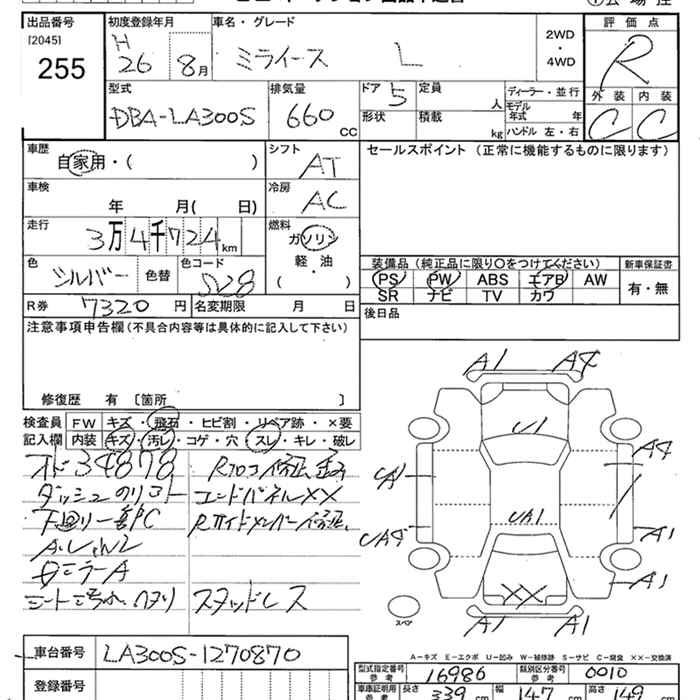 出品番号 初度登録年月 車名・グレード 評価点
[2045]
255
H
26 8月
ミライース L
2WD
・
4WD
R
型式 排気量 ドア 定員 ディーラー・並行 外装 内装
DBA-LA300S 660 CC 5 人
モデル年式 年
形状 積載 kg ハンドル 左・右
C C
車歴 シフト セールスポイント (正常に機能するものに限ります)
自家用・( ) AT
車検 冷房
年 月( 日) AC
走行 燃料
3万4千724km ガソリン
軽・油
( )
色 色替 色コード
シルバー S28
装備品 (純正品に限り○をつけてください) 新車保証書
PS PW ABS エアB AW 有・無
SR ナビ TV カワ
R券 7320円 名変期限 月 日
後日品
注意事項申告欄(不具合内容等は具体的に記入して下さい)
修復歴 有 [箇所 ]
検査員 FW キズ・飛石・ヒビ割・リペア跡・×要
記入欄 内装 キズ・汚レ・コゲ・穴 スレ・キレ・破レ
オド34878
コアパネルXX
下回り一部C
スタッドレス
A1 A4
U1
A4
UA1
UA4
A1
A1
XX
A1 A1
スペア
A-キズ E-エクボ U-凹み W-補修跡 S-サビ C-腐食 XX-交換済
車台番号 LA300S-1270870
型式指定番号 参考 16986 類別区分番号 参考 0010
登録番号
車庫証明用 参考 長さ 339cm 幅 147cm 高さ 149cm